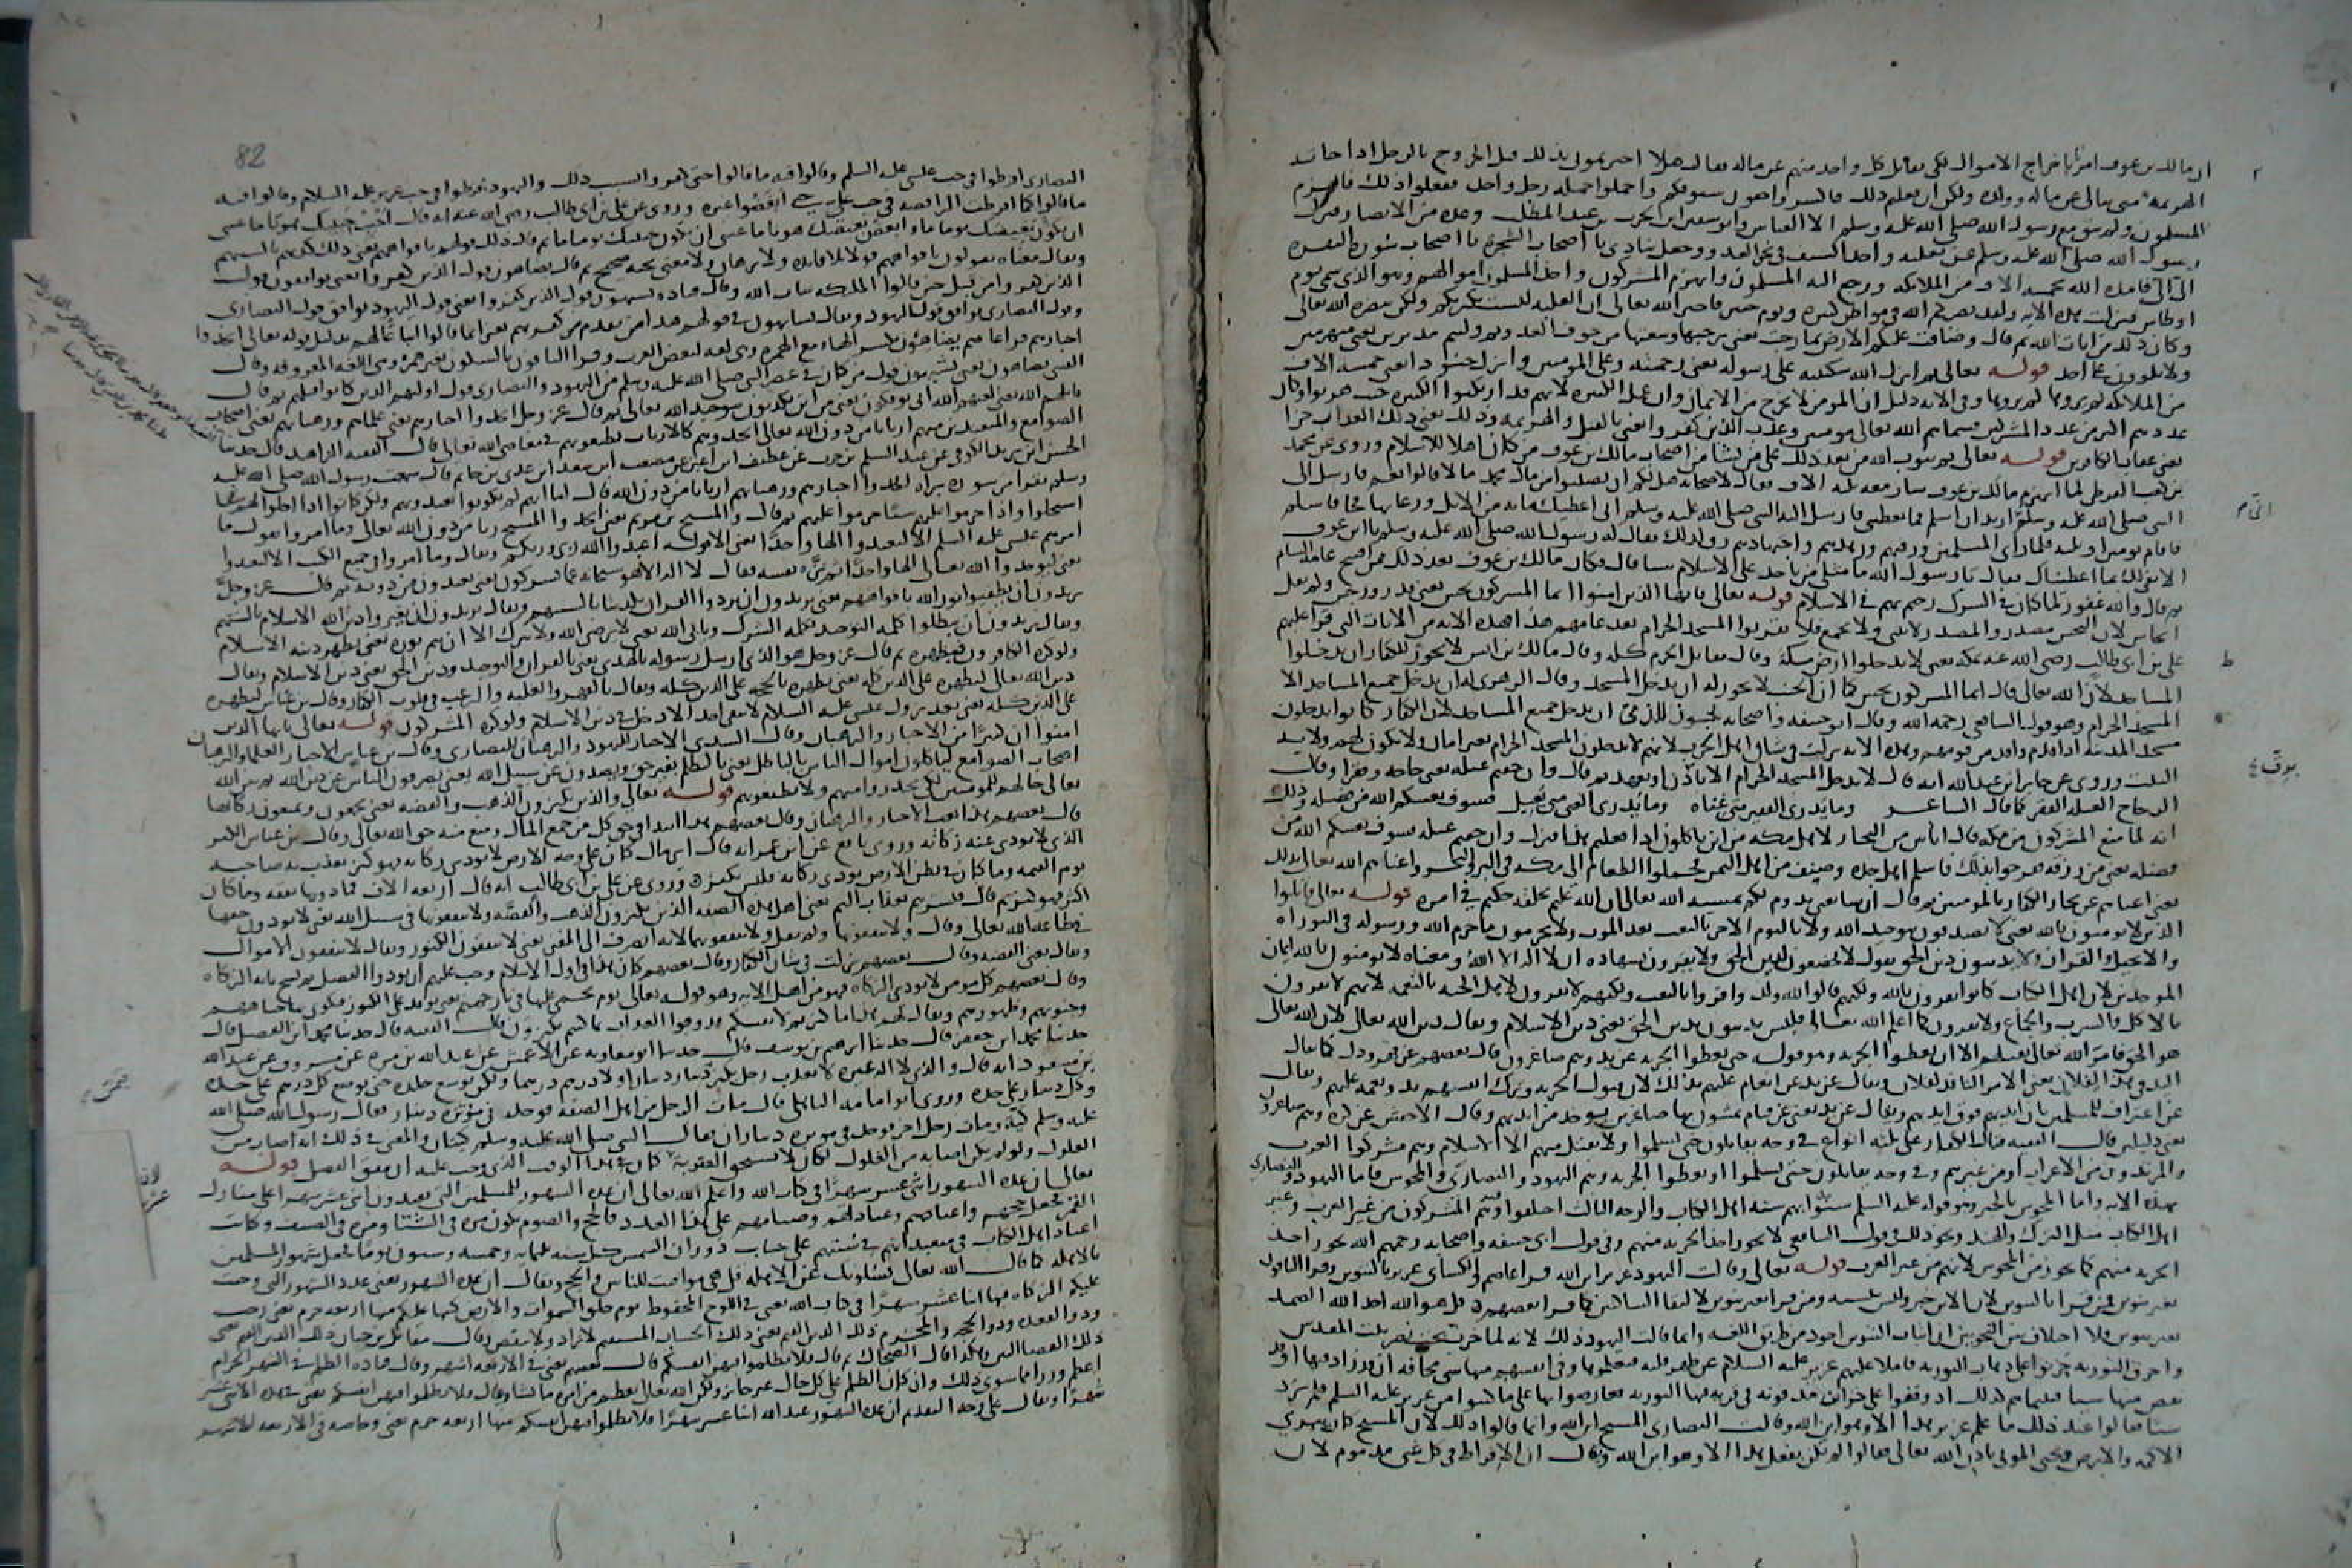 ان مالك بن عوف امرنا باخراج الاموال لكي يقاتل كل واحد منهم عن ماله فقال هلا اخبرتموني بذلك قبل الخروج فالرجل اذا جاءته
الهزيمة متى يبالي عن ماله وولده ولكن ان يعلم ذلك فاكسروا جفون سيوفكم واحملوا حملة رجل واحد ففعلوا ذلك فانهزم
المسلمون ولم يبق مع رسول الله صلى الله عليه وسلم الا العباس وابو سفيان بن الحرث بن عبد المطلب وعدة من الانصار فنزل
رسول الله صلى الله عليه وسلم عن بغلته واخذ السيف في نحر العدو وجعل ينادي يا اصحاب الشجرة يا اصحاب سورة البقرة
الي الي فامده الله بخمسة الاف من الملائكة ورجع اليه المسلمون وانهزم المشركون واخذ المسلمون اموالهم وهو الذي سمي يوم
اوطاس فنزلت هذه الاية ولقد نصركم الله في مواطن كثيرة ويوم حنين فاخبر الله تعالى ان الغلبة ليست بكثرتكم ولكن بنصرة الله تعالى
وكان ذلك من ايات الله ثم قال وضاقت عليكم الارض بما رحبت يعني برحبها وسعتها من خوف العدو ثم وليتم مدبرين يعني منهزمين
ولا تلوون على احد قوله تعالى ثم انزل الله سكينته على رسوله يعني رحمته وعلى المومنين وانزل جنودا يعني خمسة الاف
من الملائكة لم تروها وفي الاية دليل ان المومن لا يخرج من الايمان وان عمل الكبيرة لانهم قد ارتكبوا الكبيرة حيث هربوا وكان
عددهم اكثر من عدد المشركين فسماهم الله تعالى مومنين وعذب الذين كفروا يعني بالقتل والهزيمة وذلك يعني ذلك العذاب جزا
يعني عقاب الكافرين قوله تعالى ثم يتوب الله من بعد ذلك على من يشا من اصحاب مالك بن عوف من كان اهلا للاسلام وروي عن محمد
بن كعب القرظي لما انهزم مالك بن عوف سار معه ثلثة الاف فقال لاصحابه هل لكم ان تصيبوا من مال محمد مالا قالوا نعم فارسل الى
النبي صلى الله عليه وسلم اريد ان اسلم فما تعطيني فارسل اليه النبي صلى الله عليه وسلم اني اعطيك مائة من الابل ورعاها فجا فاسلم
فاقام يومين او ثلثة فلما راى المسلمين ورقتهم وزهدهم واجتهادهم رق لذلك فقال له رسول الله صلى الله عليه وسلم يا ابن عوف
الا نفي لك بما اعطيناك فقال يا رسول الله ما مثلي من ياخذ على الاسلام شيا قال فكان مالك بن عوف بعد ذلك ممن افتتح عامة الشام
ثم قال والله غفور لما كان في الشرك رحيم بهم في الاسلام قوله تعالى يا ايها الذين امنوا انما المشركون نجس يعني قذر ورجس ولم يقل
انجاس لان النجس مصدر والمصدر لا يثنى ولا يجمع فلا يقربوا المسجد الحرام بعد عامهم هذا هذه الاية من الايات التي قرا عليهم
علي بن ابي طالب رضي الله عنه بمكة يعني لا يدخلوا ارض مكة وقال مقاتل الحرم كله وقال مالك بن انس لا يجوز للكفار ان يدخلوا
المساجد لان الله تعالى قال انما المشركون نجس كما ان الجنب لا يجوز له ان يدخل المسجد وقال الزهري له ان يدخل جميع المساجد الا
المسجد الحرام وهو قول الشافعي رحمه الله وقال ابو حنيفة واصحابه يجوز للذمي ان يدخل جميع المساجد لان الكفار كانوا يدخلون
مسجد المدينة اذا قدم وافد من قومهم وهذه الاية نزلت في شان اهل الحرب لانهم لا يدخلون المسجد الحرام بغير امان ولا يكون لهم ولاية
البيت وروي عن جابر بن عبد الله انه قال لا يدخل المسجد الحرام الا باذن او بعهد ثم قال وان خفتم عيلة يعني حاجة وفقرا وقال
الزجاج العيلة الفقر كما قال الشاعر وما يدري الفقير متى غناه وما يدري الغني متى يعيل فسوف يغنيكم الله من فضله وذلك
انه لما منع المشركون من مكة قال اناس من التجار لاهل مكة من اين تاكلون اذا فعلتم هذا فنزل وان خفتم عيلة فسوف يغنيكم الله من
فضله يعني من رزقه ففرحوا بذلك فاسلم اهل جدة وصنعا من اهل اليمن فحملوا الطعام الى مكة في البر والبحر واغناهم الله تعالى بذلك
يعني اغناهم عن تجار الكفار بالمومنين ثم قال ان شا يعني يدوم لكم بمشية الله تعالى ان الله عليم بخلقه حكيم في امره قوله تعالى قاتلوا
الذين لا يومنون بالله يعني لا يصدقون بتوحيد الله ولا باليوم الاخر بالبعث بعد الموت ولا يحرمون ما حرم الله ورسوله في التوراة
والانجيل والقران ولا يدينون دين الحق يقول لا يخضعون لدين الحق ولا يقرون بشهادة ان لا اله الا الله ومعناه لا يومنون بالله ايمان
الموحدين لان اهل الكتاب كانوا يقرون بالله ولكنهم قالوا لله ولد واقروا بالبعث ولكنهم لا يقرون لاهل الجنة بالنعمة لانهم لا يقرون
بالاكل والشرب والجماع ولا يقرون كما اعلم الله تعالى فليس يدينون بدين الحق يعني دين الاسلام ويقال دين الله تعالى لان الله تعالى
هو الحق فامر الله تعالى بقتلهم الا ان يعطوا الجزية وهو قوله حتى يعطوا الجزية عن يد وهم صاغرون قال بعضهم عن قهر وذل كما يقال
اليد في هذا لفلان يعني الامر النافذ لفلان ويقال عن يد عن انعام عليهم بذلك لان قبول الجزية وترك انفسهم يد ونعمة عليهم ويقال
عن اعتراف للمسلمين بان ايديهم فوق ايديهم ويقال عن يد يعني عن قيام يمشون بها صاغرين يوخذ من ايديهم وقال الاخفش عن كره وهم صاغرون
يعني ذليلين قال الفقيه قتال الكفار على ثلثة انواع في وجه يقاتلون حتى يسلموا ولا يقبل منهم الا الاسلام وهم مشركوا العرب
والمرتدون من الاعراب او من غيرهم وفي وجه يقاتلون حتى يسلموا او يعطوا الجزية وهم اليهود والنصارى والمجوس فاما اليهود والنصارى
بهذه الاية واما المجوس بالخبر وهو قوله عليه السلم سنوا بهم سنة اهل الكتاب والوجه الثالث اختلفوا فيه وهم المشركون من غير العرب وغير
اهل الكتاب مثل الترك والهند ونحو ذلك في قول الشافعي لا يجوز اخذ الجزية منهم وفي قول ابي حنيفة واصحابه رحمهم الله يجوز اخذ
الجزية منهم كما يجوز من المجوس لانهم من غير العرب قوله تعالى وقالت اليهود عزير ابن الله قرا عاصم والكسائي عزير بالتنوين وقرا الباقون
بغير تنوين فمن قرا بالتنوين لان الابن خبر وليس بنسبة ومن قرا بغير تنوين لالتقا الساكنين كما قرا بعضهم قل هو الله احد الله الصمد
بغير تنوين ولا اختلاف بين النحويين ان اثبات التنوين اجود من طريق اللغة وانما قالت اليهود ذلك لانه لما خرب بخت نصر بيت المقدس
واحرق التوراة حزنوا على ذهاب التوراة فاملاها عليهم عزير عليه السلام عن ظهر قلبه فتعلموها وفي انفسهم منها شي مخافة ان يكون زاد فيها او نقص
منها شيا فبينما هم كذلك اذ وقفوا على خوابي مدفونة في قرية فيها التوراة فعارضوا بها على ما كتبوا من عزير عليه السلم فلم يزد
شيا فقالوا عند ذلك ما علم عزير هذا الا وهو ابن الله وقالت النصارى المسيح ابن الله وانما قالوا ذلك لان المسيح كان يبري
الاكمه والابرص ويحيي الموتى باذن الله تعالى فقالوا لم يكن يفعل هذا الا وهو ابن الله ويقال ان الافراط في كل شي مذموم لان
82
النصارى افرطوا في حب عيسى عليه السلم وقالوا فيه ما قالوا حتى كفروا بسبب ذلك واليهود افرطوا في حب عزير عليه السلام وقالوا فيه
ما قالوا كما افرطت الرافضة في حب علي حتى ابغضوا غيره وروي عن علي بن ابي طالب رضي الله عنه انه قال احبب حبيبك هونا ما عسى
ان يكون بغيضك يوما ما وابغض بغيضك هونا ما عسى ان يكون حبيبك يوما ما ثم قال ذلك قولهم بافواههم يعني ذلك كذبهم بالسنتهم
ويقال معناه يقولون بافواههم قولا بلا فايدة ولا برهان ولا معنى بحجة صحيح ثم قال يضاهون قول الذين كفروا يعني يوافقون قول
الذين كفروا من قبل حين قالوا الملايكة بنات الله وقال قتادة يشبهون قول الذين كفروا يعني قول اليهود يوافق قول النصارى
وقول النصارى يوافق قول اليهود
احبارهم قرا عاصم يضاهئون بكسر الها مع الهمزة وهي لغة لبعض العرب وقرا الباقون بالسكون بغير همز وهي اللغة المعروفة وقال
القتبي يضاهون يعني يشبهون قول من كان في عصر النبي صلى الله عليه وسلم من اليهود والنصارى قول اوليهم الذين كانوا قبلهم ثم قال
قاتلهم الله يعني لعنهم الله انى يوفكون يعني من اين يكذبون بتوحيد الله تعالى ثم قال عز وجل اتخذوا احبارهم يعني علماهم ورهبانهم يعني اصحاب
الصوامع والمتعبدين منهم اربابا من دون الله يعني اتخذوهم كالارباب يطيعونهم في معاصي الله تعالى قال الفقيه الزاهد قال حدثنا
الحسن بن يزيد الكوفي عن عبد السلم بن حرب عن غطيف بن اعين عن مصعب بن سعد عن عدي بن حاتم قال سمعت رسول الله صلى الله عليه
وسلم يقرا من سورة براة اتخذوا احبارهم ورهبانهم اربابا من دون الله قال اما انهم لم يكونوا يعبدونهم ولكن كانوا اذا احلوا لهم شيا
استحلوا واذا حرموا عليهم شيا حرموا عليهم ثم قال والمسيح بن مريم يعني اتخذوا المسيح ربا من دون الله تعالى وما امروا يقول ما
امرهم عيسى عليه السلم الا ليعبدوا الها واحدا يعني الا قوله اعبدوا الله ربي وربكم ويقال وما امروا في جميع الكتب الا ليعبدوا
يعني ليوحدوا الله تعالى الها واحدا ثم نزه نفسه فقال لا اله الا هو سبحانه عما يشركون يعني يعبدون من دونه ثم قال عز وجل
يريدون ان يطفيوا نور الله بافواههم يعني يريدون ان يردوا القران تكذيبا بالسنتهم ويقال يريدون ان يغيروا دين الله الاسلام بالسنتهم
ويقال يريدون ان يبطلوا كلمة التوحيد بكلمة الشرك ويابى الله يعني لا يرضى الله ولا يترك الا ان يتم نوره يعني يظهر دينه الاسلام
ولو كره الكافرون فيظهره ثم قال عز وجل هو الذي ارسل رسوله بالهدى يعني بالقران والتوحيد ودين الحق يعني دين الاسلام ويقال
دين الله تعالى ليظهره على الدين كله يعني يظهره بالحجة على الدين كله ويقال بالقهر والغلبة والرعب في قلوب الكفار وقال بن عباس ليظهره
على الدين كله يعني بعد نزول عيسى عليه السلام لا يبقى احد الا دخل في دين الاسلام ولو كره المشركون قوله تعالى يا ايها الذين
امنوا ان كثيرا من الاحبار والرهبان وقال السدي الاحبار لليهود والرهبان للنصارى وقال بن عباس الاحبار العلما والرهبان
اصحاب الصوامع لياكلون اموال الناس بالباطل يعني بالظلم بغير حق ويصدون عن سبيل الله يعني يصرفون الناس عن دين الله ثم بين الله
تعالى حالهم للمومنين لكي يحذروا منهم ولا يطيعونهم قوله تعالى والذين يكنزون الذهب والفضة يعني يجمعون ويمنعون زكاتها
قال بعضهم هذا نعت الاحبار والرهبان وقال بعضهم هذا ابتدا في كل من جمع المال ومنع منه حق الله تعالى وقال بن عباس الكنز
الذي لا يودى عنه زكاته وروى نافع عن ابن عمر انه قال اي مال كان على وجه الارض لا يودى زكاته فهو كنز يعذب به صاحبه
يوم القيمة وما كان في بطن الارض يودى زكاته فليس بكنز وروي عن علي بن ابي طالب انه قال اربعة الاف فما دونها نفقة وما كان
اكثر فهو كنز ثم قال فبشرهم بعذاب اليم يعني اهل هذه الصفة الذين يكنزون الذهب والفضة ولا ينفقونها في سبيل الله يعني لا يودون حقها
في طاعة الله تعالى وقال ولا ينفقونها ولم يقل ولا ينفقونهما لانه انصرف الى المعنى يعني لا ينفقون الكنوز ويقال لا ينفقون الاموال
ويقال يعني الفضة وقال بعضهم نزلت في شان الكفار وقال بعضهم كان هذا في اول الاسلام وجب عليهم ان يودوا الفضل ثم نسخ باية الزكاة
وقال بعضهم كل مومن لا يودي الزكاة فهو من اهل الاية وهو قوله تعالى يوم يحمى عليها في نار جهنم يعني يوقد على الكنوز فتكوى بها جباههم
وجنوبهم وظهورهم ويقال لهم هذا ما كنزتم لانفسكم وذوقوا العذاب بما كنتم تكنزون قال الفقيه قال حدثنا محمد بن الفضل قال
حدثنا محمد بن جعفر قال حدثنا ابرهيم بن يوسف قال حدثنا ابو معاوية عن الاعمش عن عبد الله بن مرة عن مسروق عن عبد الله
بن مسعود انه قال والذي لا اله غيره لا يعذب رجل يكنز دينار دينارا ولا درهم درهما ولكن يوسع جلده حتى يوضع كل درهم على حدة
وكل دينار على حدة وروى ابو امامة الباهلي قال مات الرجل من اهل الصفة فوجد في مئزره دينار فقال رسول الله صلى الله
عليه وسلم كية ومات رجل اخر فوجد في مئزره ديناران فقال النبي صلى الله عليه وسلم كيتان والمعنى في ذلك انه اصاب من
الغلول ولو لم يكن اصابه من الغلول لكان لا يستحق العقوبة كان هذا الوقت الذي وجب عليه ان ينفق الفضل قوله
تعالى ان عدة الشهور اثني عشر شهرا في كتاب الله واعلم الله تعالى ان عدة الشهور للمسلمين التي يعبدون اثني عشر شهرا على منازل
القمر فجعل حجهم واعيادهم وعباداتهم وصيامهم على هذا العدد فالحج والصوم يكون مرة في الشتا ومرة في الصيف وكانت
اعياد اهل الكتاب في متعبداتهم في سنتهم على حساب دوران الشمس كل سنة ثلثماية وخمسة وستون يوما فجعل شهور المسلمين
بالاهلة كما قال الله تعالى يسئلونك عن الاهلة قل هي مواقيت للناس والحج ويقال ان عدة الشهور يعني عدد الشهور التي وجبت
عليكم الزكاة فيها اثنا عشر شهرا في كتاب الله يعني في اللوح المحفوظ يوم خلق السموات والارض كتبها عليكم منها اربعة حرم يعني رجب
وذو القعدة وذو الحجة والمحرم ذلك الدين القيم يعني ذلك الحساب المستقيم لا يزاد ولا ينقص وقال مقاتل بن حيان ذلك الدين القيم يعني
ذلك القضا البين وهكذا قال الضحاك ثم قال فلا تظلموا فيهن انفسكم قال بعضهم يعني في الاربعة اشهر وقال قتادة الظلم في الشهر الحرام
اعظم وزرا مما سوى ذلك وان كان الظلم على كل حال غير جايز ولكن الله تعالى يعظم من امره ما يشا ويقال فلا تظلموا فيهن انفسكم يعني في هذه الاثني عشر
شهرا ويقال على وجه التقديم ان عدة الشهور عند الله اثنا عشر شهرا فلا تظلموا فيهن انفسكم منها اربعة حرم يعني وخاصة في الاربعة